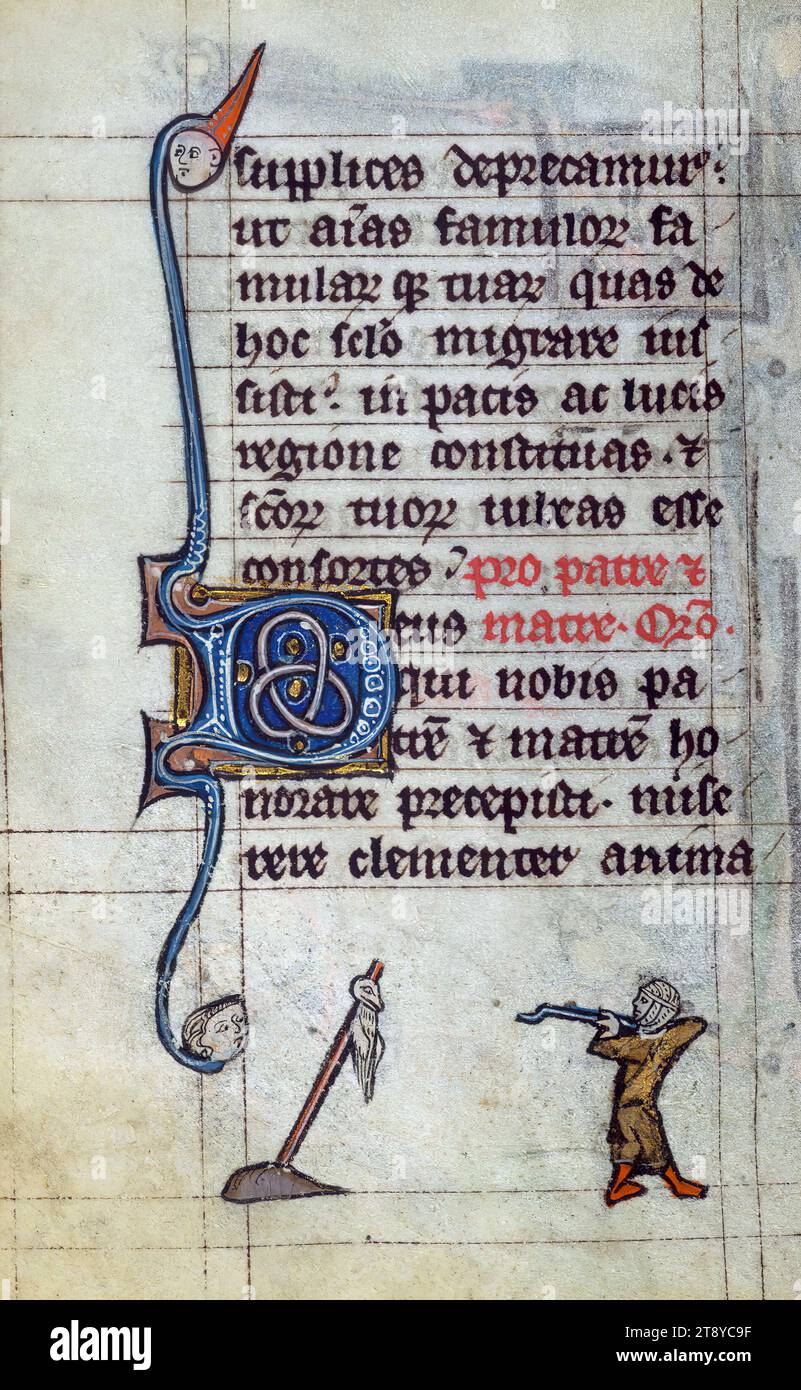 supplices deprecamur᷒.
ut aĩas famuloꝝ fa
mulaꝝ qꝫ tuaꝝ quas de
hoc sclõ migrare ius
sisti. in pacis ac lucis
regione constituas. ⁊
scõꝝ tuoꝝ iubeas esse
consortes. pro patre ⁊
Deus matre. Orõ.
qui nobis pa
trẽ ⁊ matrẽ ho
norare precepisti. mise
rere clementer anima
alamy
alamy
alamy
alamy
Image ID: 2T8YC9F
www.alamy.com